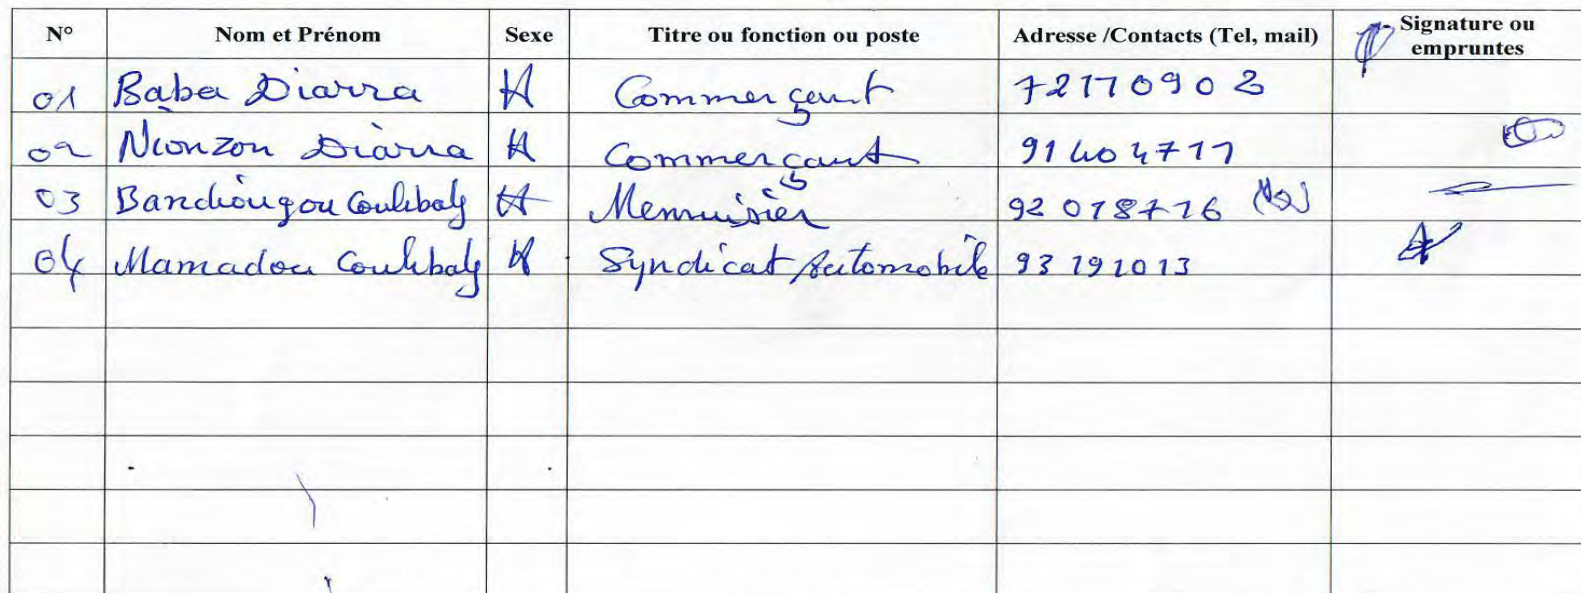 N° Nom et Prénom Sexe Titre ou fonction ou poste Adresse /Contacts (Tel, mail) Signature ou empruntes
01 Baba Diarra H Commerçant 72170902
02 Nionzon Diarra H Commerçant 91404711
03 Bandiougou Coulibaly H Menuisier 92018716
04 Mamadou Coulibaly H Syndicat Automobile 93191013